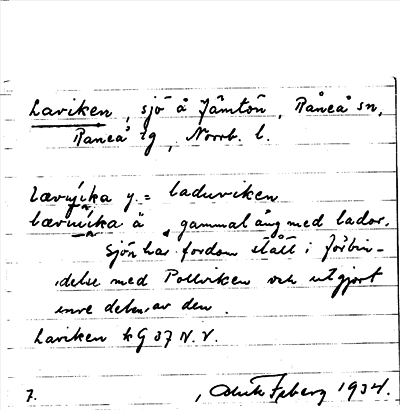 Laviken, sjö å Jämtön, Råneå sn,
Råneå tg, Norrb. l.
lævvika y. = laduviken
lævvika ä, gammal äng med lador.
Sjön har fordom stått i förbin-
delse med Pollviken och utgjort
inre delen av den.
Laviken kG 37 N.V.
7. 1934.